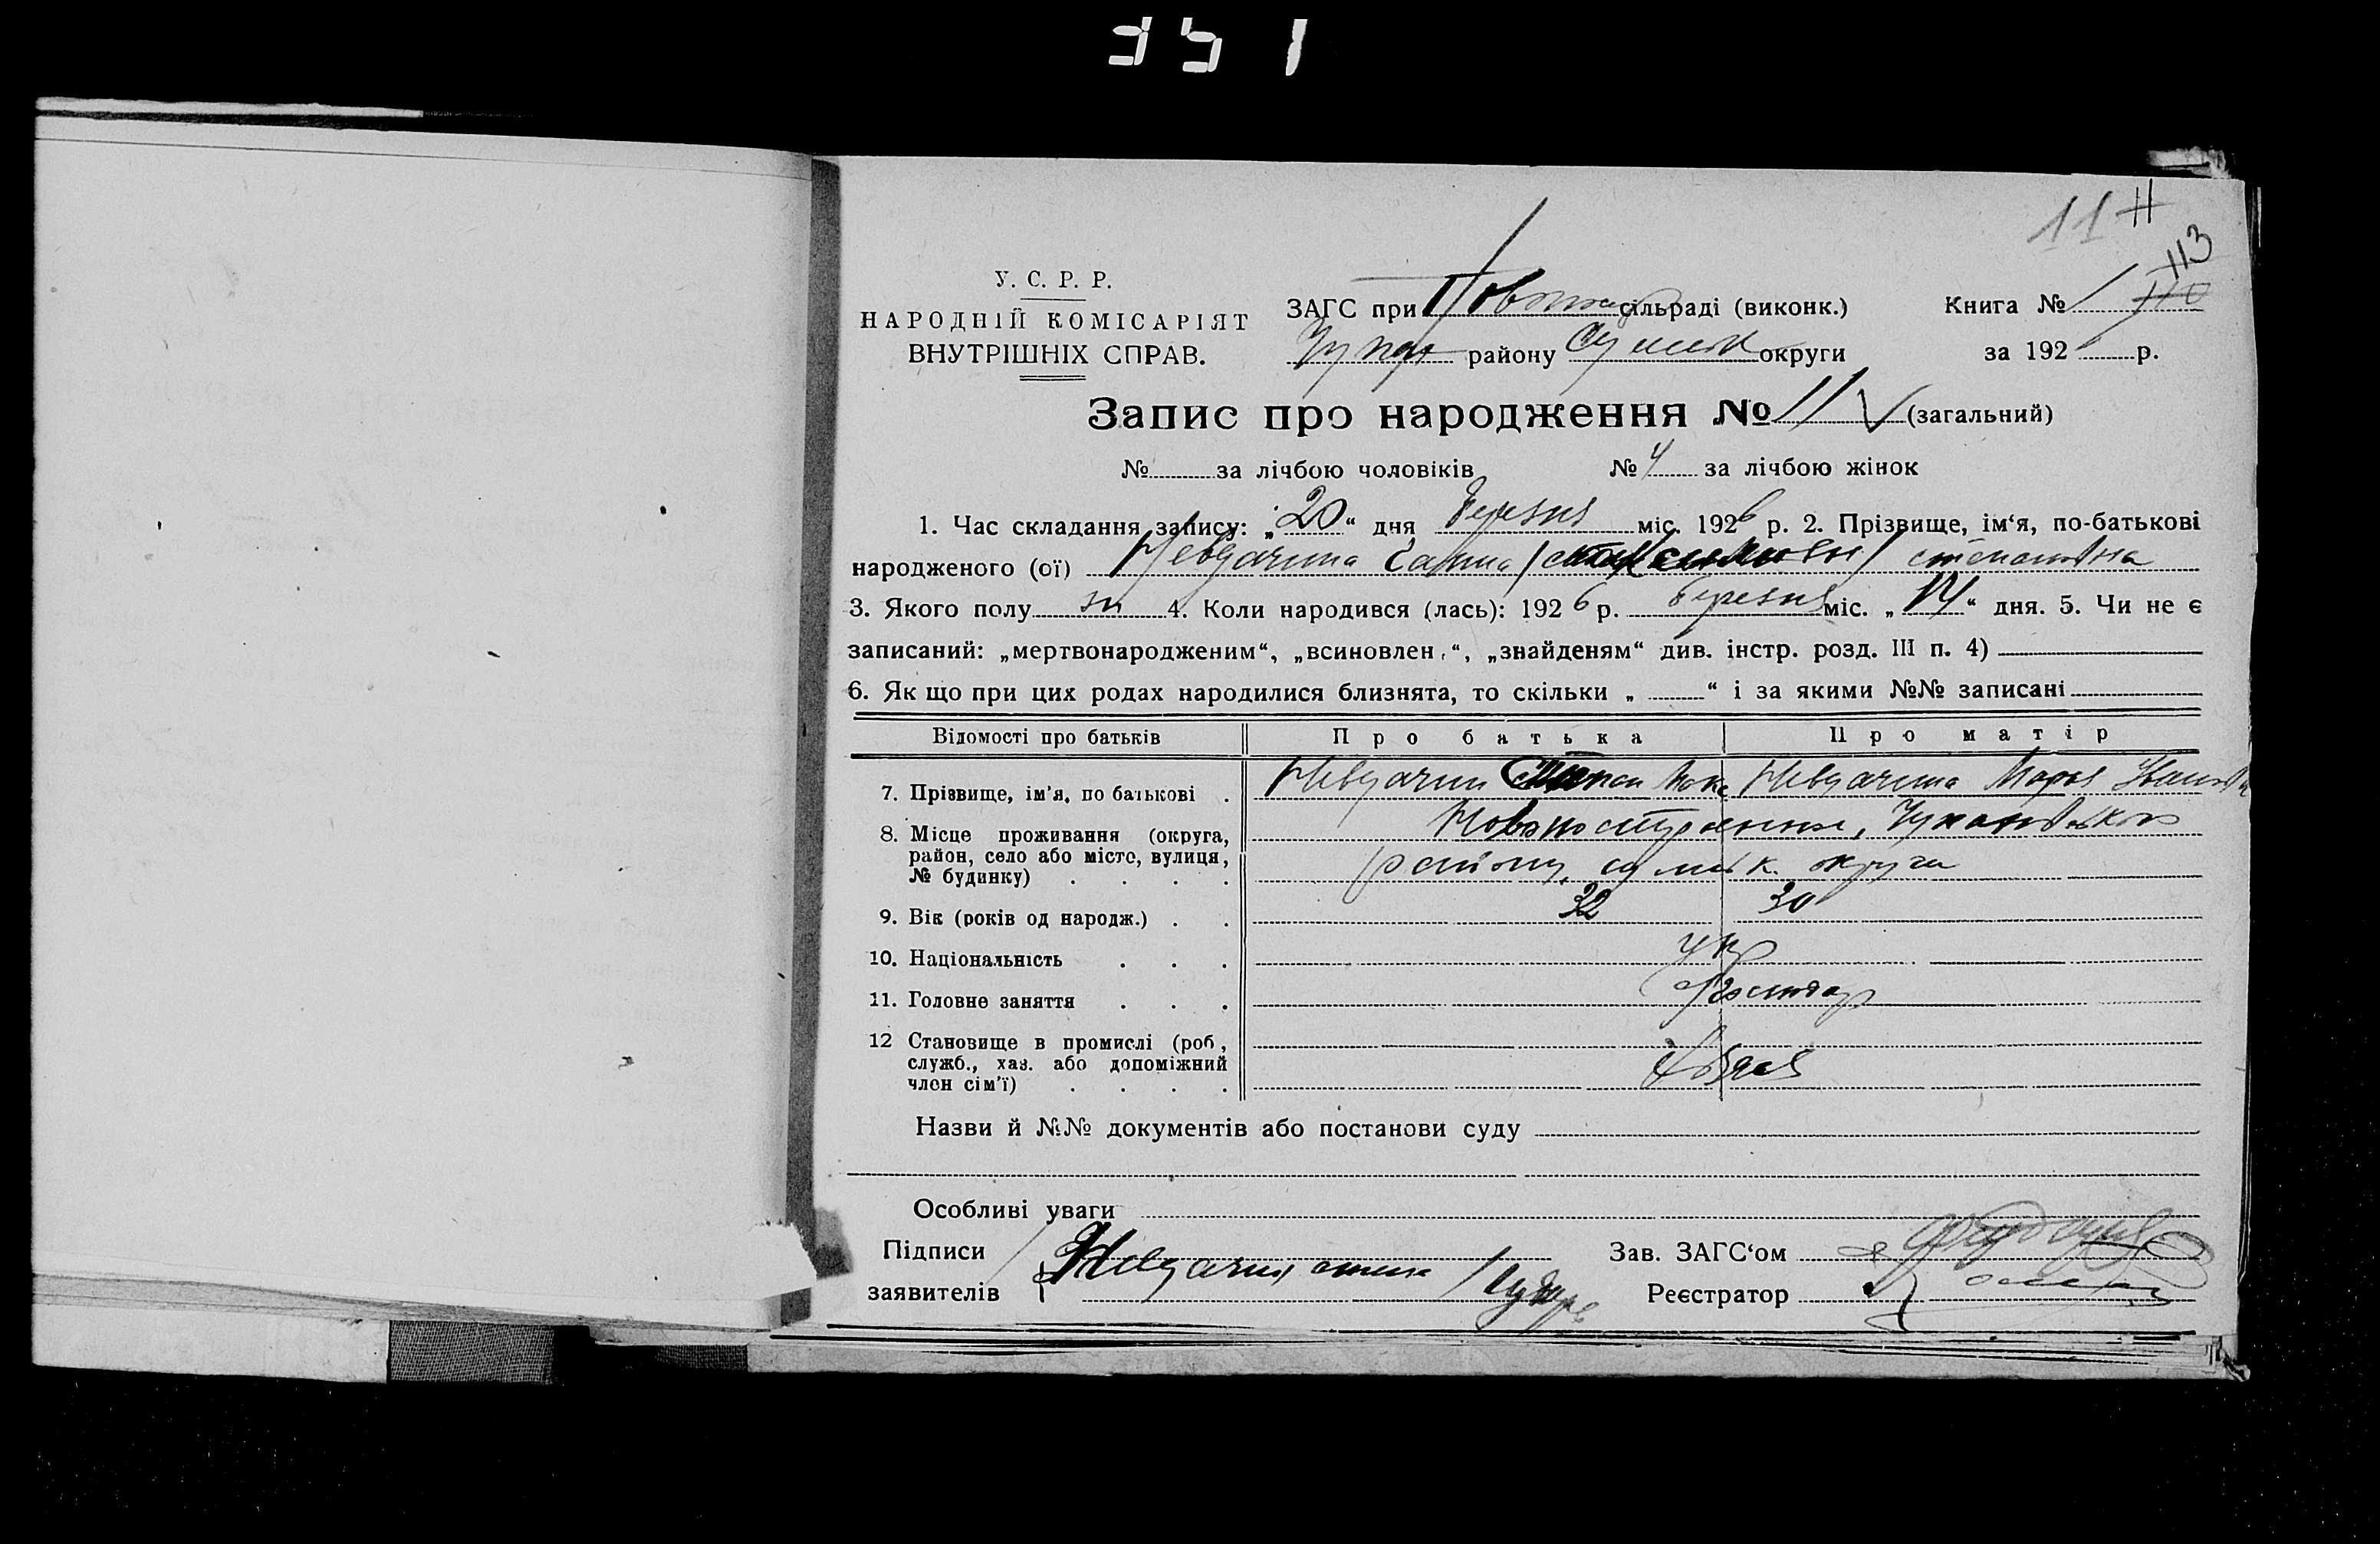 351
11 11
113
У. С. Р. Р.
НАРОДНІЙ КОМІСАРІЯТ
ВНУТРІШНІХ СПРАВ.
ЗАГС при сільраді (виконк.)
району Сумськ округи
Книга № 1 110
за 192 р.
Запис про народження № 11 (загальний)
№ за лічбою чоловіків № 4 за лічбою жінок
1. Час складання запису: „20“ дня березня міс. 1926 р. 2. Прізвище, ім‘я, по-батькові
народженого (ої) Невдачина Ганна степановна
3. Якого полу ж 4. Коли народився (лась): 1926 р. березня міс. „14“ дня. 5. Чи не є
записаний: „мертвонародженим“, „всиновлен.“, „знайденям“ див. інстр. розд. III п. 4)
6. Як що при цих родах народилися близнята, то скільки „ “ і за якими №№ записані
Відомості про батьків Про батька Про матір
7. Прізвище, ім’я, по батькові . Невдачин Степан Невдачина Марья Іванов
8. Місце проживання (округа,
район, село або місто, вулиця,
№ будинку) . . . .
району, сумськ. округи
9. Вік (років од народж.) . . 32 30
10. Національність . . . укр
11. Головне заняття . . .
12 Становище в промислі (роб,
служб., хаз. або допоміжний
член сім’ї) . . . .
Назви й №№ документів або постанови суду
Особливі уваги
Підписи
заявителів
Невдачин
Зав. ЗАГС‘ом
Реєстратор